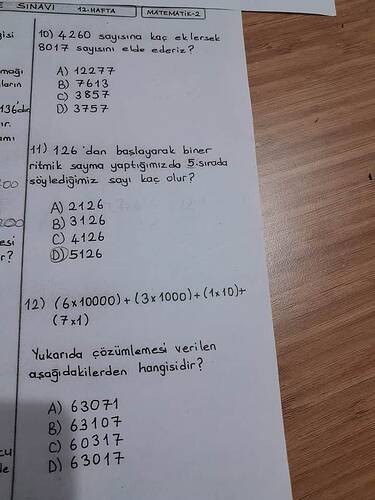 SINAVI
12.HAFTA
MATEMATİK-2
10) 4260 sayısına kaç eklersek
8017 sayısını elde ederiz?
A) 12277
B) 7613
C) 3857
D) 3757
11) 126'dan başlayarak biner
ritmik sayma yaptığımızda 5.sırada
söylediğimiz sayı kaç olur?
A) 2126
B) 3126
C) 4126
D) 5126
12) (6x10000)+(3x1000)+(1x10)+
(7x1)
Yukarıda çözümlemesi verilen
aşağıdakilerden hangisidir?
A) 63071
B) 63107
C) 60317
D) 63017